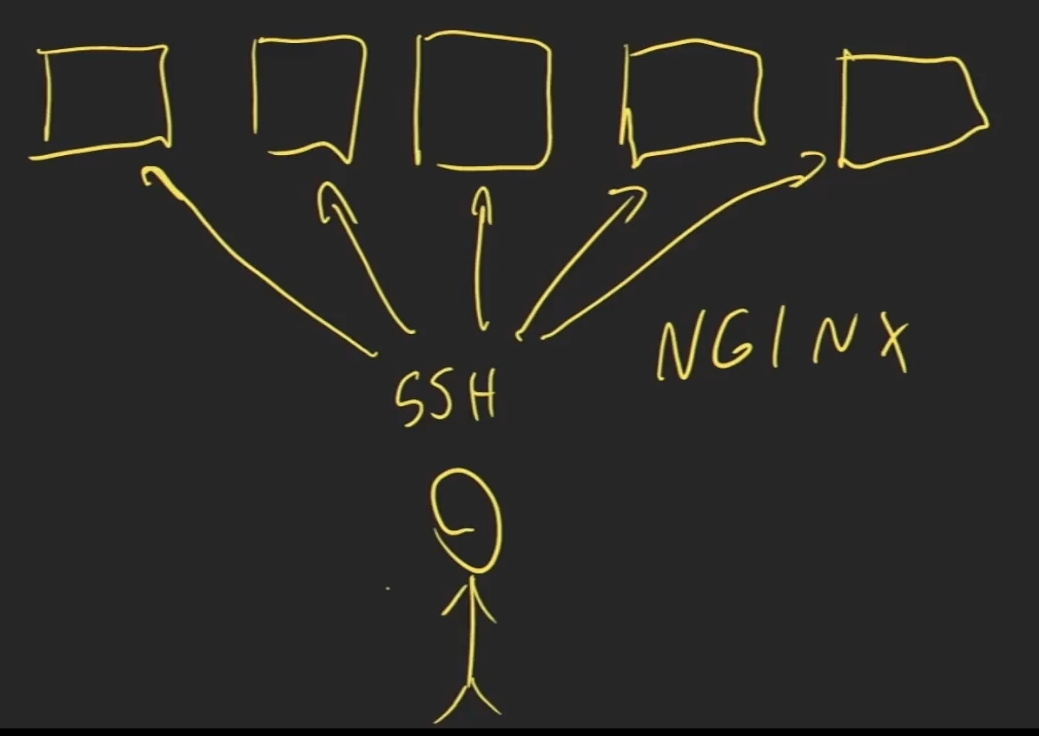 NGINX
SSH